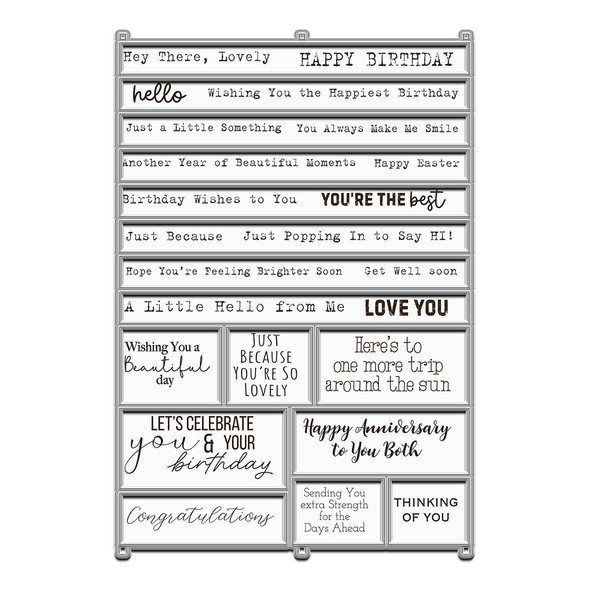 Hey There, Lovely HAPPY BIRTHDAY
hello Wishing You the Happiest Birthday
Just a Little Something You Always Make Me Smile
Another Year of Beautiful Moments Happy Easter
Birthday Wishes to You YOU'RE THE best
Just Because Just Popping In to Say HI!
Hope You're Feeling Brighter Soon Get Well soon
A Little Hello from Me LOVE YOU
Wishing You a
Beautiful
day
JUST
BECAUSE
YOU'RE SO
LOVELY
Here's to
one more trip
around the sun
LET'S CELEBRATE
you & YOUR
birthday
Happy Anniversary
to You Both
Congratulations
Sending You
extra Strength
for the
Days Ahead
THINKING
OF YOU